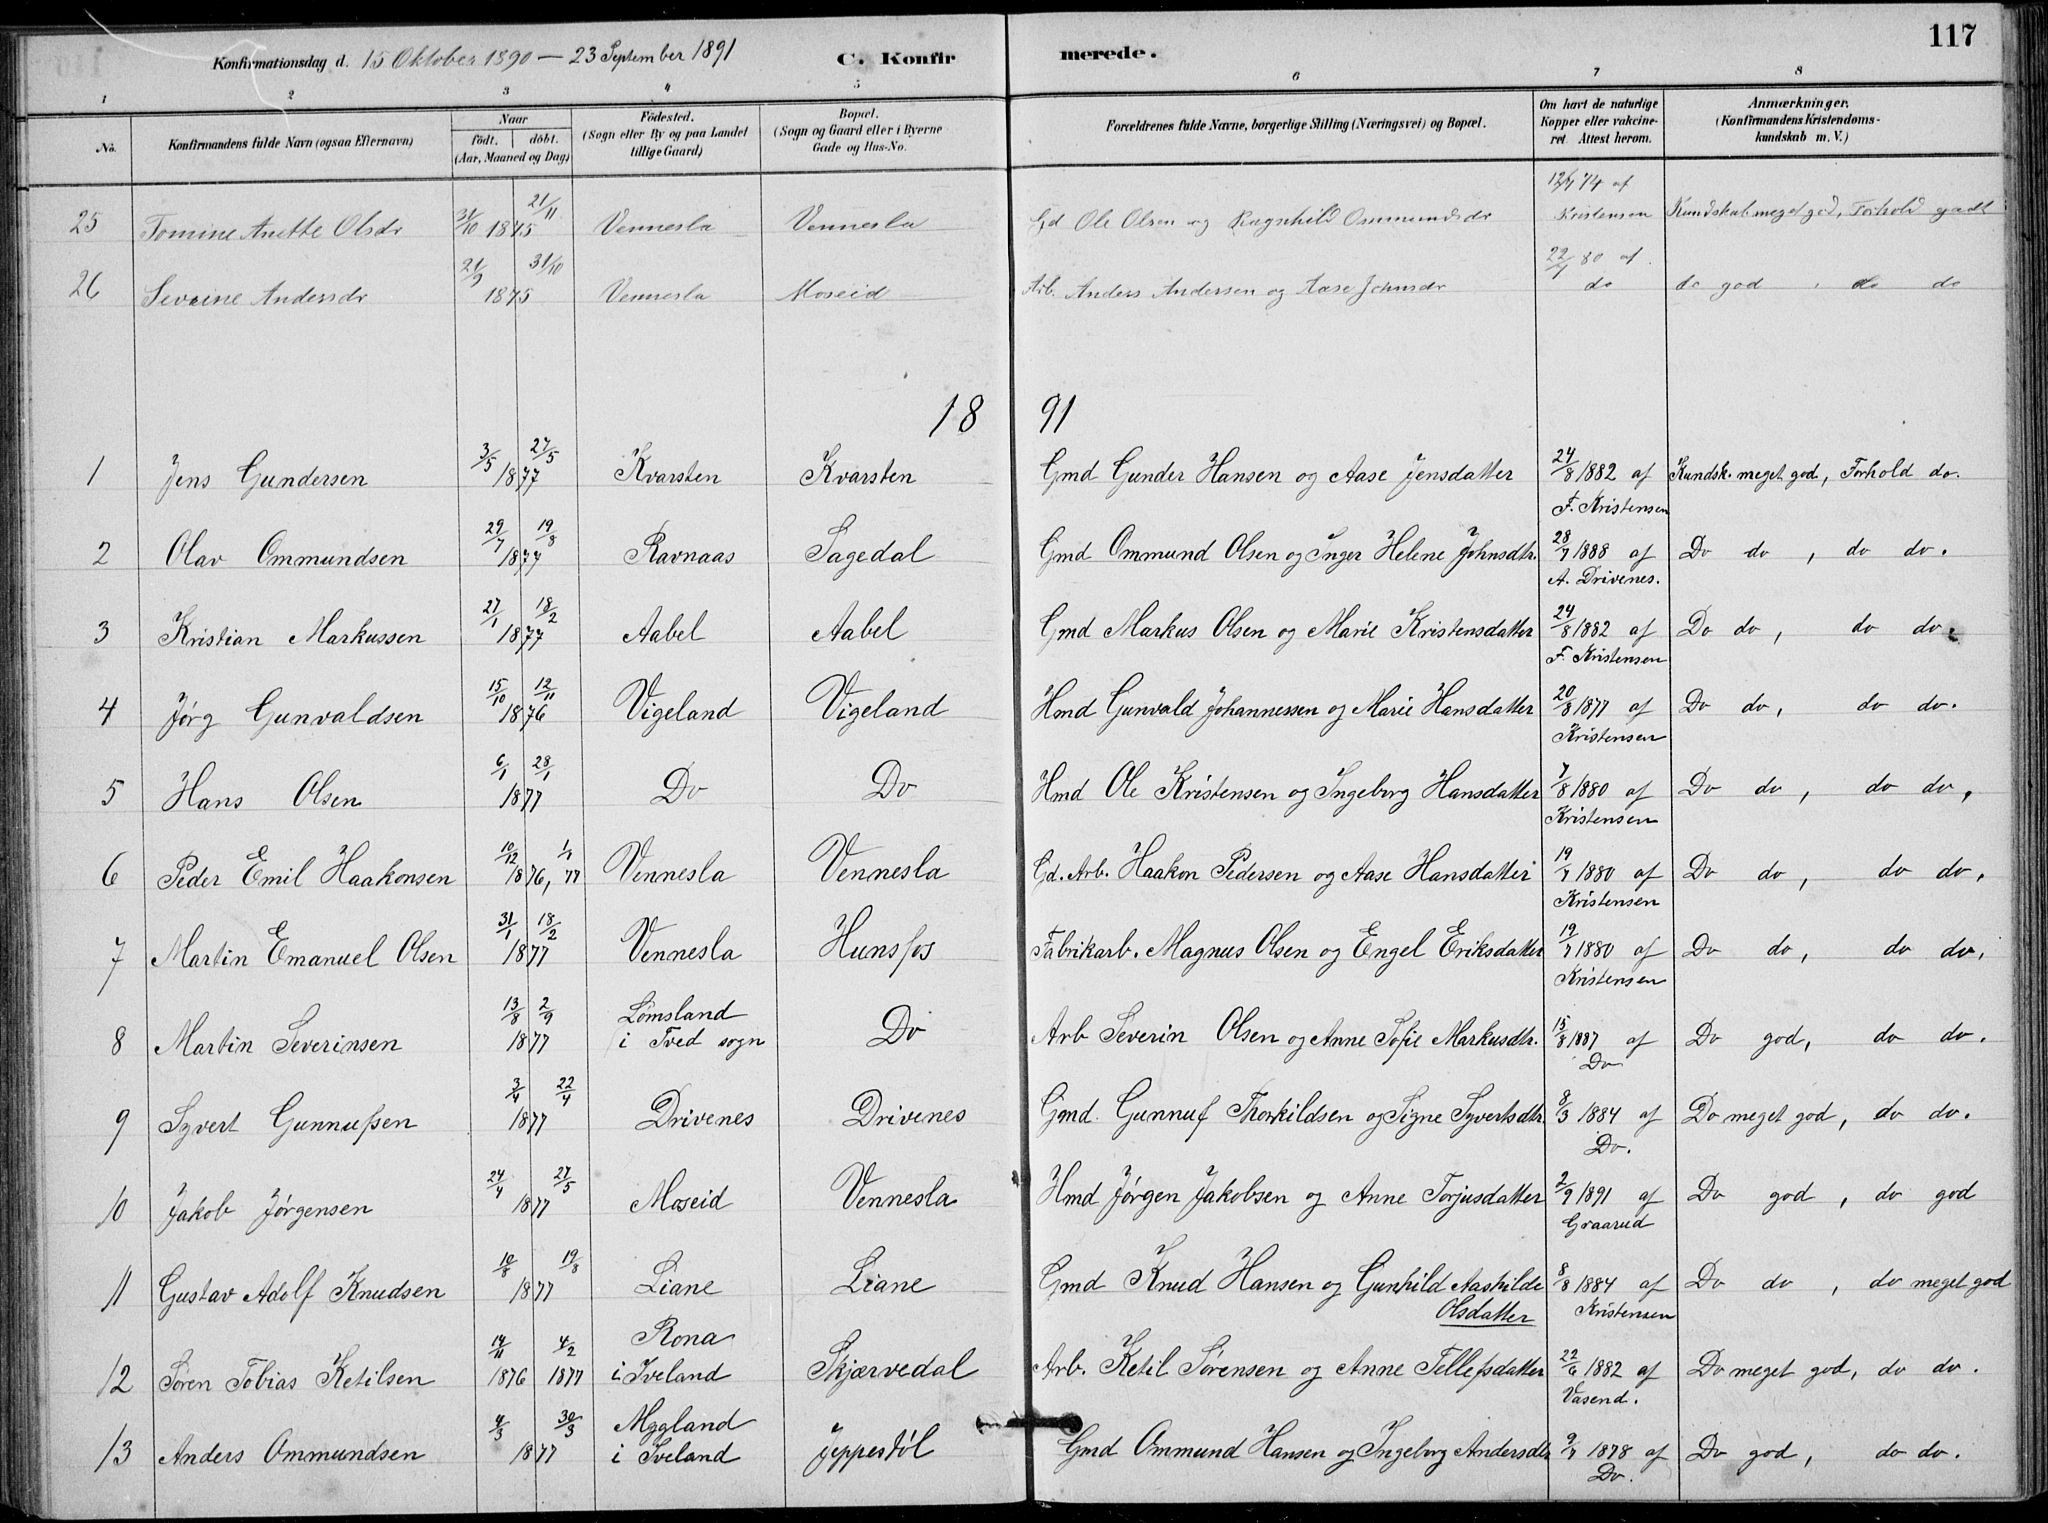 117
Konfirmationsdag d. 15 Oktober 1890 — 23 September 1891 C. Konfirmerede.
1 2 3 4 5 6 7 8
No. Konfirmandens fulde Navn (ogsaa Efternavn) Naar födt. döbt. (Aar, Maaned og Dag) Födested. (Sogn eller By og paa Landet tillige Gaard) Bopæl. (Sogn og Gaard eller i Byerne Gade og Hus-No. Forældrenes fulde Navne, borgerlige Stilling (Næringsvei) og Bopæl. Om havt de naturlige Kopper eller vakcineret. Attest herom. Anmærkninger. (Konfirmandens Kristendomskundskab m. V.)
25 Tomine Anette Olsdr 31/10 21/11 1875 Vennesla Vennesla Gd Ole Olsen og Ragnhild Ommundsdr 74 af Kristensen Kundskab meget god, Forhold godt
26 Sevrine Andersdr 21/9 31/10 1875 Vennesla Moseid Arb. Anders Andersen og Aase Johnsdr 22/7 80 af do do god, do do
18 91
1 Jens Gundersen 3/5 27/5 1877 Kvarsten Kvarsten Gmd Gunder Hansen og Aase Jensdatter 24/8 1882 af F. Kristensen Kundsk. meget god, Forhold do.
2 Olav Ommundsen 29/7 19/8 1877 Ravnaas Sagedal Gmd Ommund Olsen og Inger Helene Johnsdtr. 28/7 1888 af A. Drivenes. Do do, do do.
3 Kristian Markussen 27/1 18/2 1877 Aabel Aabel Gmd Markus Olsen og Marie Kristensdatter 24/8 1882 af F. Kristensen Do do, do do.
4 Jørg Gunvaldsen 15/10 12/11 1876 Vigeland Vigeland Hmd Gunvald Johannessen og Marie Hansdatter 20/8 1877 af Kristensen Do do, do do.
5 Hans Olsen 6/1 28/1 1877 Do Do Hmd Ole Kristensen og Ingeborg Hansdatter 7/8 1880 af Kristensen Do do, do do,
6 Peder Emil Haakonsen 10/12 1/1 1876, 77 Vennesla Vennesla Gd. Arb. Haakon Pedersen og Aase Hansdatter 19/7 1880 af Kristensen Do do, do do,
7 Martin Emanuel Olsen 31/1 18/2 1877 Vennesla Hunsfos Fabrikarb. Magnus Olsen og Engel Eriksdatter 19/7 1880 af Kristensen Do do, do do,
8 Martin Severinsen 13/8 2/9 1877 Lømsland i Tved sogn Do Arb Severin Olsen og Anne Sofie Markusdtr. 15/8 1887 af Do Do god, do do.
9 Syvert Gunnufsen 3/4 22/4 1877 Drivenes Drivenes Gmd. Gunnuf Thorkildsen og Signe Syvertsdtr. 8/3 1884 af Do. Do meget god, do do.
10 Jakob Jørgensen 24/4 27/5 1877 Moseid Vennesla Hmd Jørgen Jakobsen og Anne Torjusdatter 2/9 1891 af Graarud Do god, do god
11 Gustav Adolf Knudsen 10/8 19/8 1877 Liane Liane Gmd Knud Hansen og Gunhild Aashilde Olsdatter 8/8 1884 af Kristensen Do do, do meget god
12 Søren Tobias Ketilsen 14/11 4/2 1876 1877 Rona i Iveland Skjærvedal Arb. Ketil Sørensen og Anne Tellefsdatter 22/6 1882 af Vasend. Do meget god, do do.
13 Anders Ommundsen 4/3 30/3 1877 Mygland i Iveland Jeppestøl Gmd Ommund Hansen og Ingeborg Andersdtr 9/7 1878 af Do. Do god, do do.